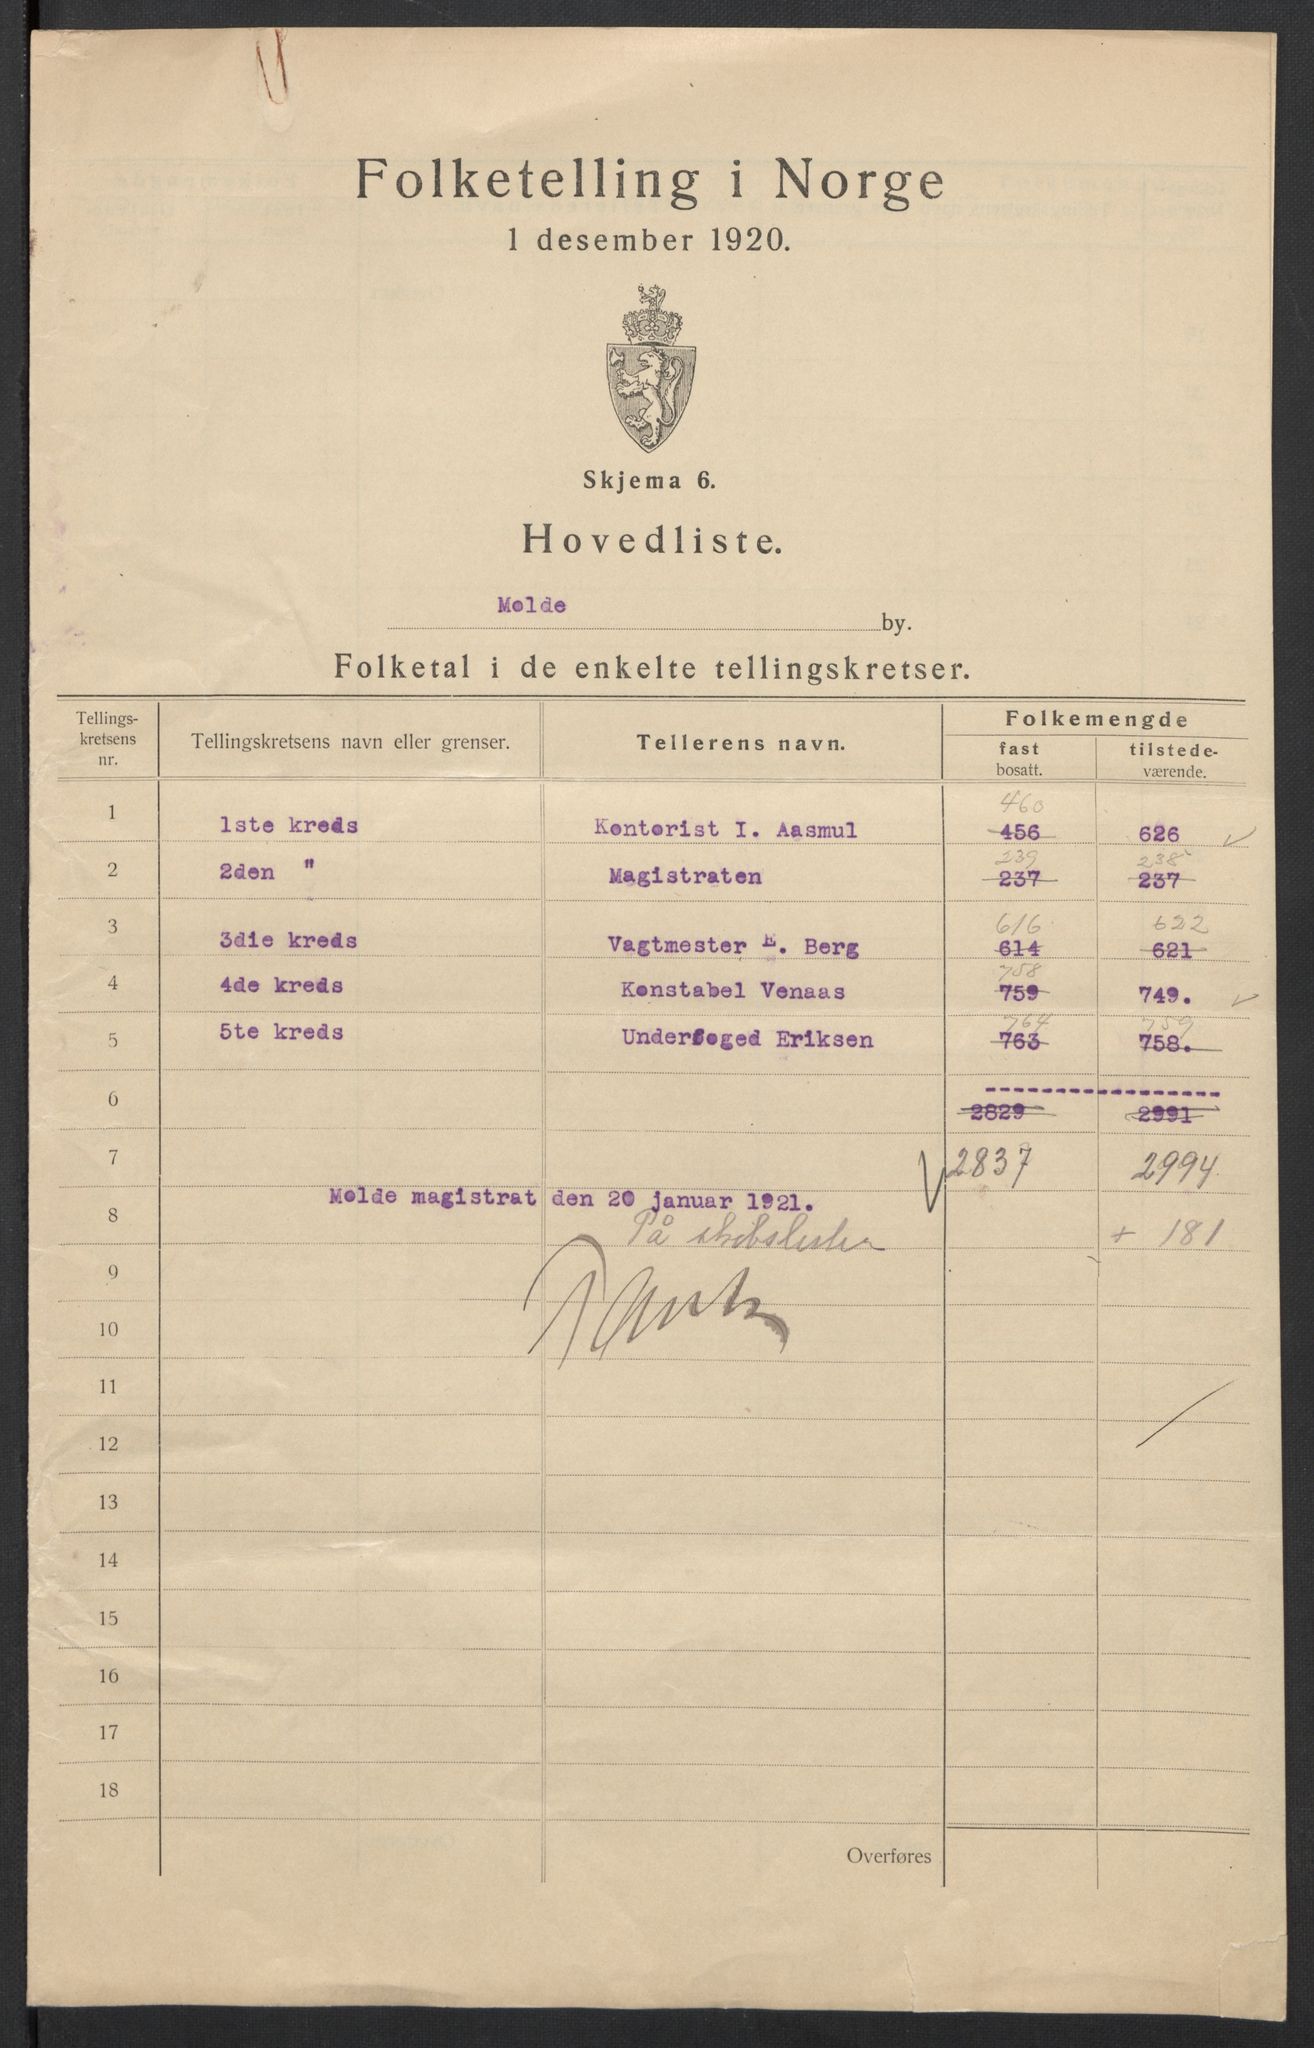 Folketelling i Norge
1 desember 1920.
Skjema 6.
Hovedliste.
Molde by.
Folketal i de enkelte tellingskretser.
Tellings-kretsens nr. Tellingskretsens navn eller grenser. Tellerens navn. Folkemengde
fast bosatt. tilstede-værende.
460
1 1ste kreds Kontorist I. Aasmul 456 626
239 238
2 2den " Magistraten 237 237
616 622
3 3die kreds Vagtmester E. Berg 614 621
758
4 4de kreds Konstabel Venaas 759 749.
764 759
5 5te kreds Underfoged Eriksen 763 758.
6 2829 2991
7 2837 2994
Molde magistrat den 20 januar 1921.
8 På + 181
9
10
11
12
13
14
15
16
17
18
Overføres